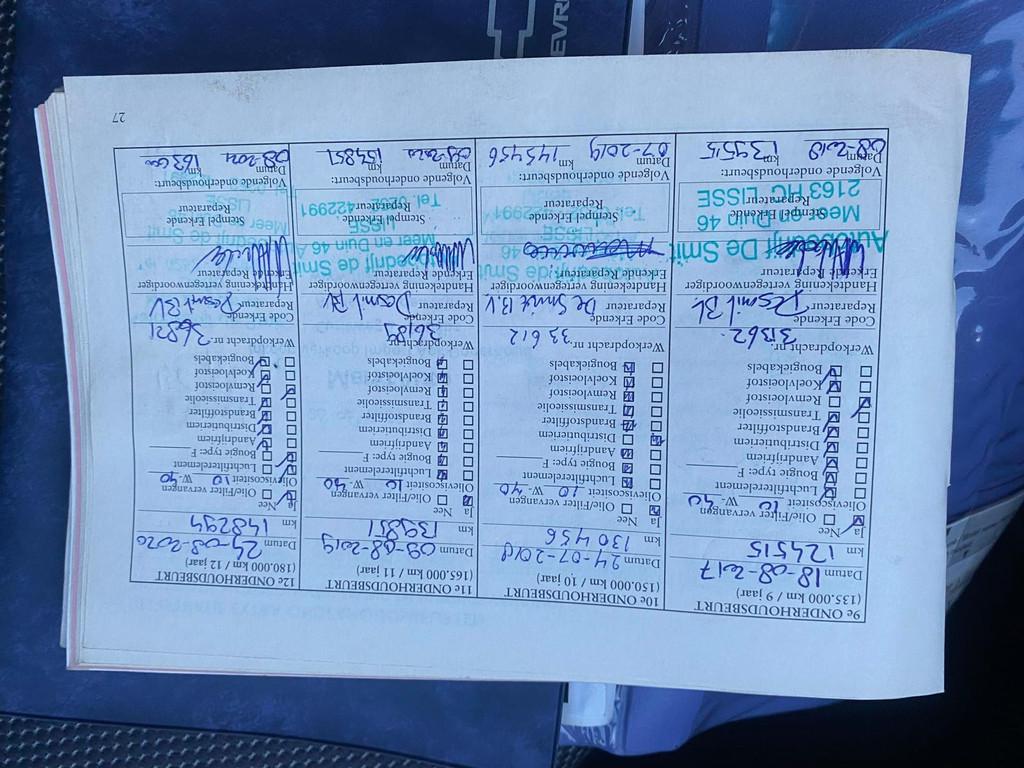 9e ONDERHOUDSBEURT
(135.000 km / 9 jaar)
Datum 18-08-2017
km 124515
Ja Nee
Olie/Filter vervangen
Olieviscositeit 10 W- 40
Luchtfilterelement
Bougie type: F
Aandrijfriem
Distributieriem
Brandstoffilter
Transmissieolie
Remvloeistof
Koelvloeistof
Bougiekabels
Werkopdracht nr. 31362
Code Erkende
Reparateur
Handtekening vertegenwoordiger
Erkende Reparateur
Autobedrijf De Smit
Stempel Erkende
Reparateur
Meer en Duin 46
2163 HC LISSE
Volgende onderhoudsbeurt:
Datum km
08-2018 139515
10e ONDERHOUDSBEURT
(150.000 km / 10 jaar)
Datum 24-07-2018
km 130456
Ja Nee
Olie/Filter vervangen
Olieviscositeit 10 W- 40
Luchtfilterelement
Bougie type: F
Aandrijfriem
Distributieriem
Brandstoffilter
Transmissieolie
Remvloeistof
Koelvloeistof
Bougiekabels
Werkopdracht nr. 33612
Code Erkende
Reparateur De Smit B.V
Handtekening vertegenwoordiger
Erkende Reparateur
Stempel Erkende
Reparateur
Volgende onderhoudsbeurt:
Datum km
07-2019 145456
11e ONDERHOUDSBEURT
(165.000 km / 11 jaar)
Datum 09-08-2019
km 139851
Ja Nee
Olie/Filter vervangen
Olieviscositeit 10 W- 40
Luchtfilterelement
Bougie type: F
Aandrijfriem
Distributieriem
Brandstoffilter
Transmissieolie
Remvloeistof
Koelvloeistof
Bougiekabels
Werkopdracht nr. 36189
Code Erkende
Reparateur Desmit BV
Handtekening vertegenwoordiger
Erkende Reparateur
Autobedrijf de Smit
Meer en Duin 46
Stempel Erkende
LISSE
Reparateur
Tel. 0252-422991
Volgende onderhoudsbeurt:
Datum km
08-2020 154851
12e ONDERHOUDSBEURT
(180.000 km / 12 jaar)
Datum 24-08-2020
km 148294
Ja Nee
Olie/Filter vervangen
Olieviscositeit 10 W- 40
Luchtfilterelement
Bougie type: F
Aandrijfriem
Distributieriem
Brandstoffilter
Transmissieolie
Remvloeistof
Koelvloeistof
Bougiekabels
Werkopdracht nr. 36821
Code Erkende
Reparateur Desmit BV
Handtekening vertegenwoordiger
Erkende Reparateur
Stempel Erkende
Reparateur
LISSE
Volgende onderhoudsbeurt:
Datum km
08-2021 163000
27